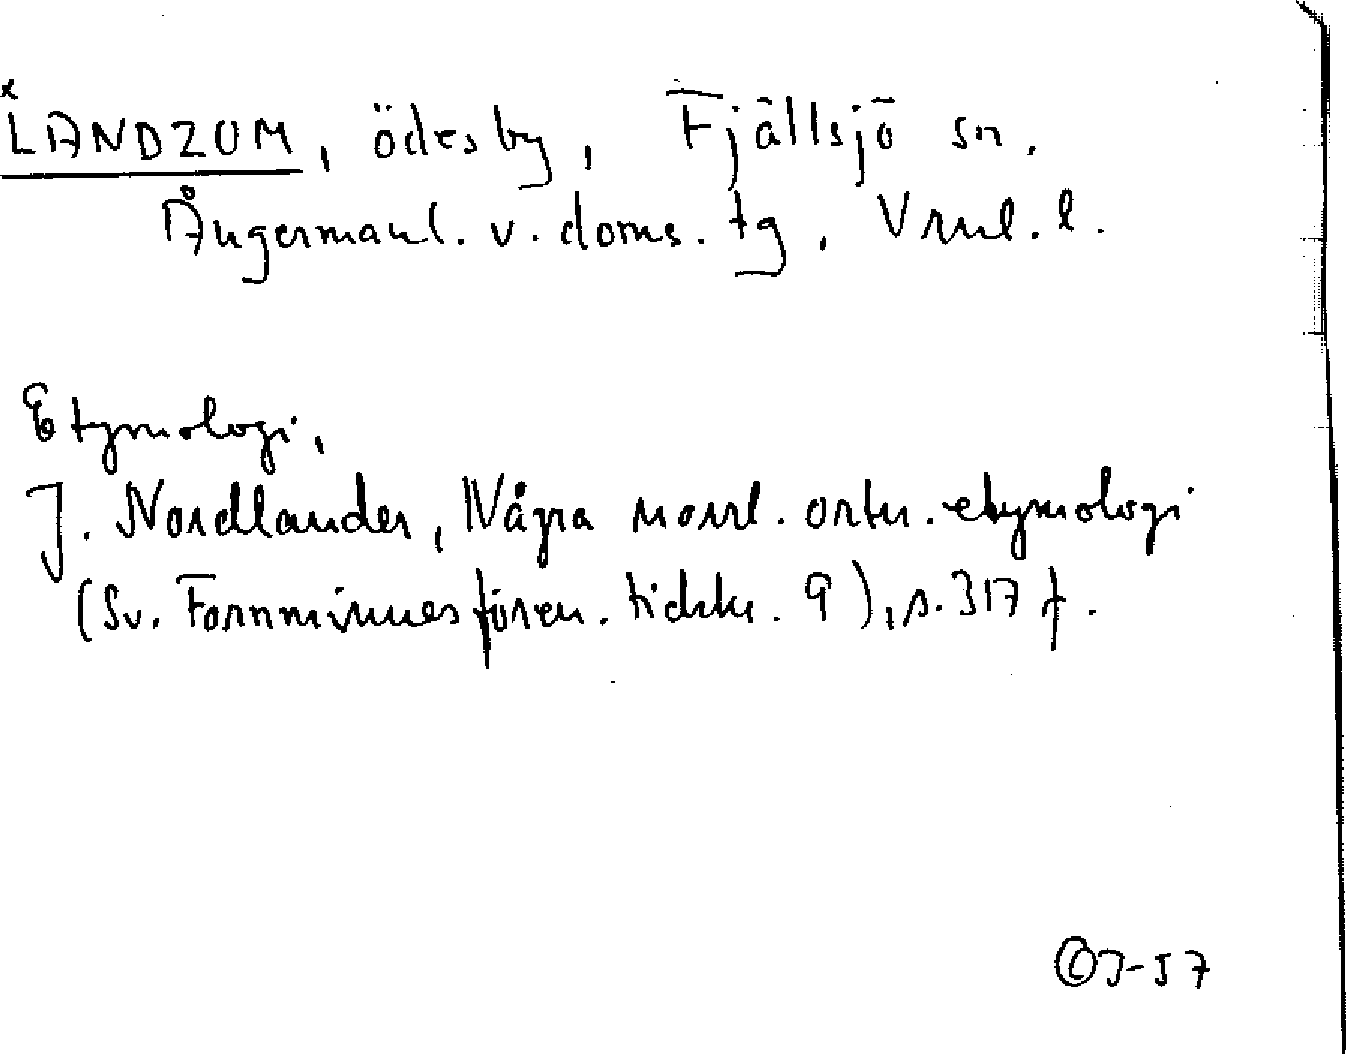 x
LANDZUM, ödesby, Fjällsjö sn.
Ångermanl. v. doms. tg, Vrnl. l.
Etymologi.
J. Nordlander, Några norrl. ortn. etymologi
(Sv. Fornminnesfören. tidskr. 9), s. 317 f.
J-57